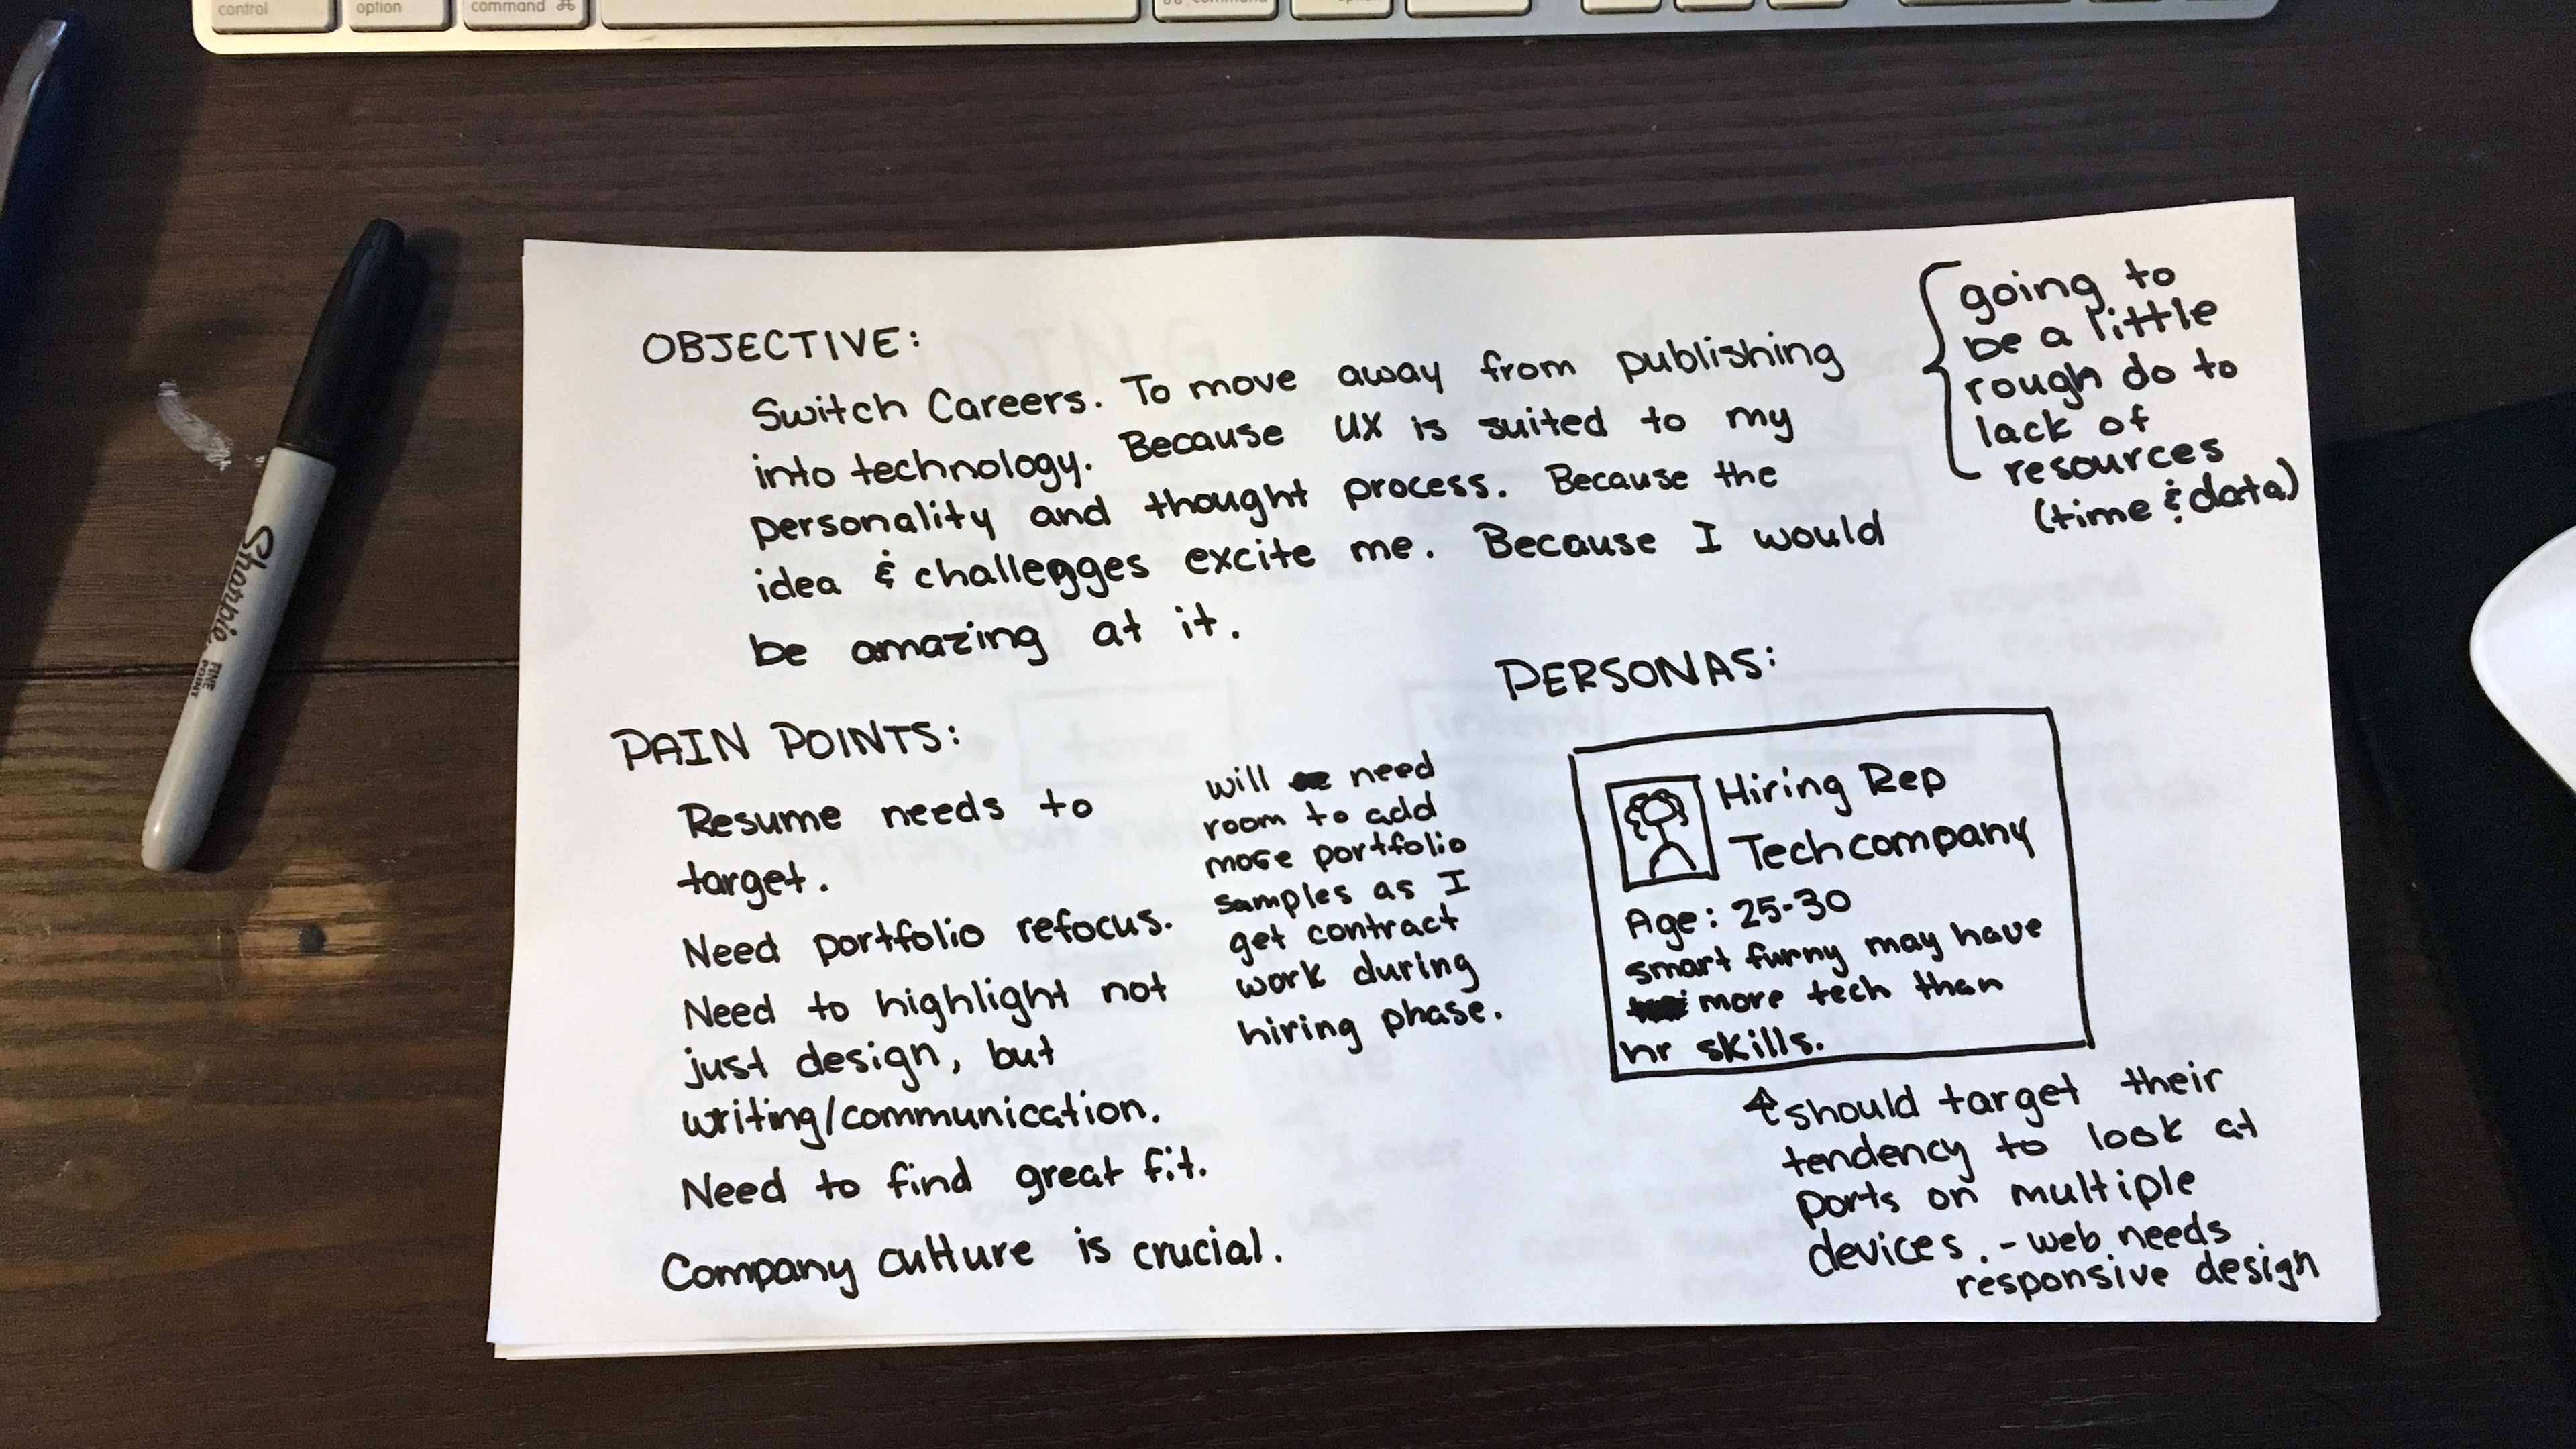 control
option
command ⌘
Sharpie
FINE
POINT
OBJECTIVE:
Switch Careers. To move away from publishing
into technology. Because UX is suited to my
personality and thought process. Because the
idea & challenges excite me. Because I would
be amazing at it.
going to
be a little
rough do to
lack of
resources
(time & data)
PAIN POINTS:
Resume needs to
target.
Need portfolio refocus.
Need to highlight not
just design, but
writing/communication.
Need to find great fit.
Company culture is crucial.
will need
room to add
more portfolio
samples as I
get contract
work during
hiring phase.
PERSONAS:
Hiring Rep
Tech company
Age: 25-30
smart funny may have
more tech than
hr skills.
should target their
tendency to look at
ports on multiple
devices. - web needs
responsive design